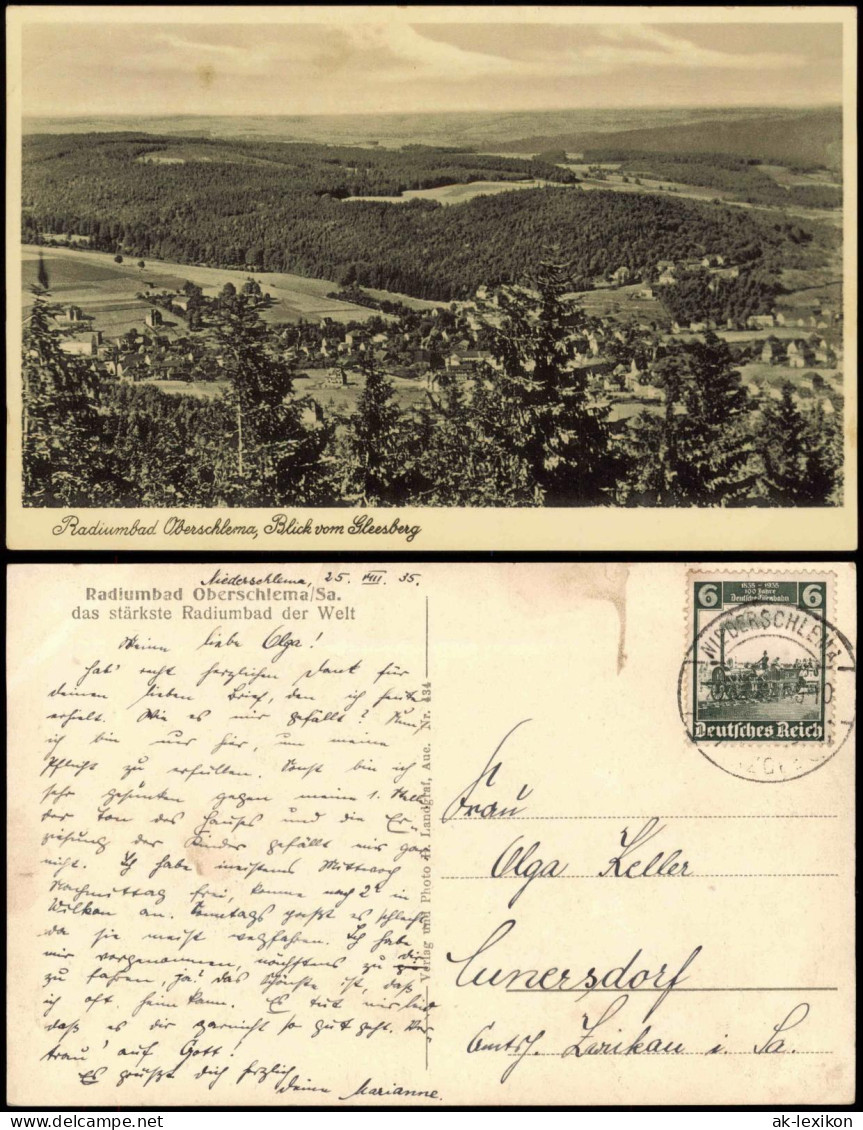 Radiumbad Oberschlema, Blick vom Gleesberg
Niederschlema, 25. VIII. 35.
Radiumbad Oberschlema/Sa.
das stärkste Radiumbad der Welt
Meine liebe Olga!
Hab' recht herzlichen Dank für
deinen lieben Brief, den ich heute
erhielt. Wie es mir gefällt?
ich bin nur hier, um meine
Pflicht zu erfüllen. Sonst bin ich
sehr gesunken gegen meine 1. Stelle
der Ton des Hauses und die Er-
ziehung der Kinder gefällt mir gar
nicht. Ich habe meistens Mittwoch
Nachmittag frei, komme nach 2 in
Wilkau an. Sonntags paßt es schlecht
da sie meist wegfahren. Ich habe
mir vorgenommen, nächstens zu dir
zu fahren, ja! das Schönste ist, daß
ich oft heim kann. Es tut mir leid
daß es dir garnicht so gut geht. Ver-
trau' auf Gott!
Es grüßt dich herzlich
deine Marianne.
Verlag und Photo H. Landgraf, Aue. Nr. 434
6 1835-1935 6
100 Jahre
Deutsche Eisenbahn
Deutsches Reich
NIEDERSCHLEMA
Frau
Olga Keller
Cunersdorf
Amtsh. Zwickau i. Sa.
ak-lexikon